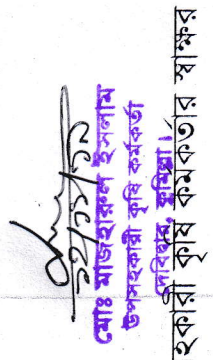 মোঃ মাজহারুল ইসলাম
উপসহকারী কৃষি কর্মকর্তা
দেবিদ্বার, কুমিল্লা।
হকারী কৃষি কর্মকর্তার স্বাক্ষর